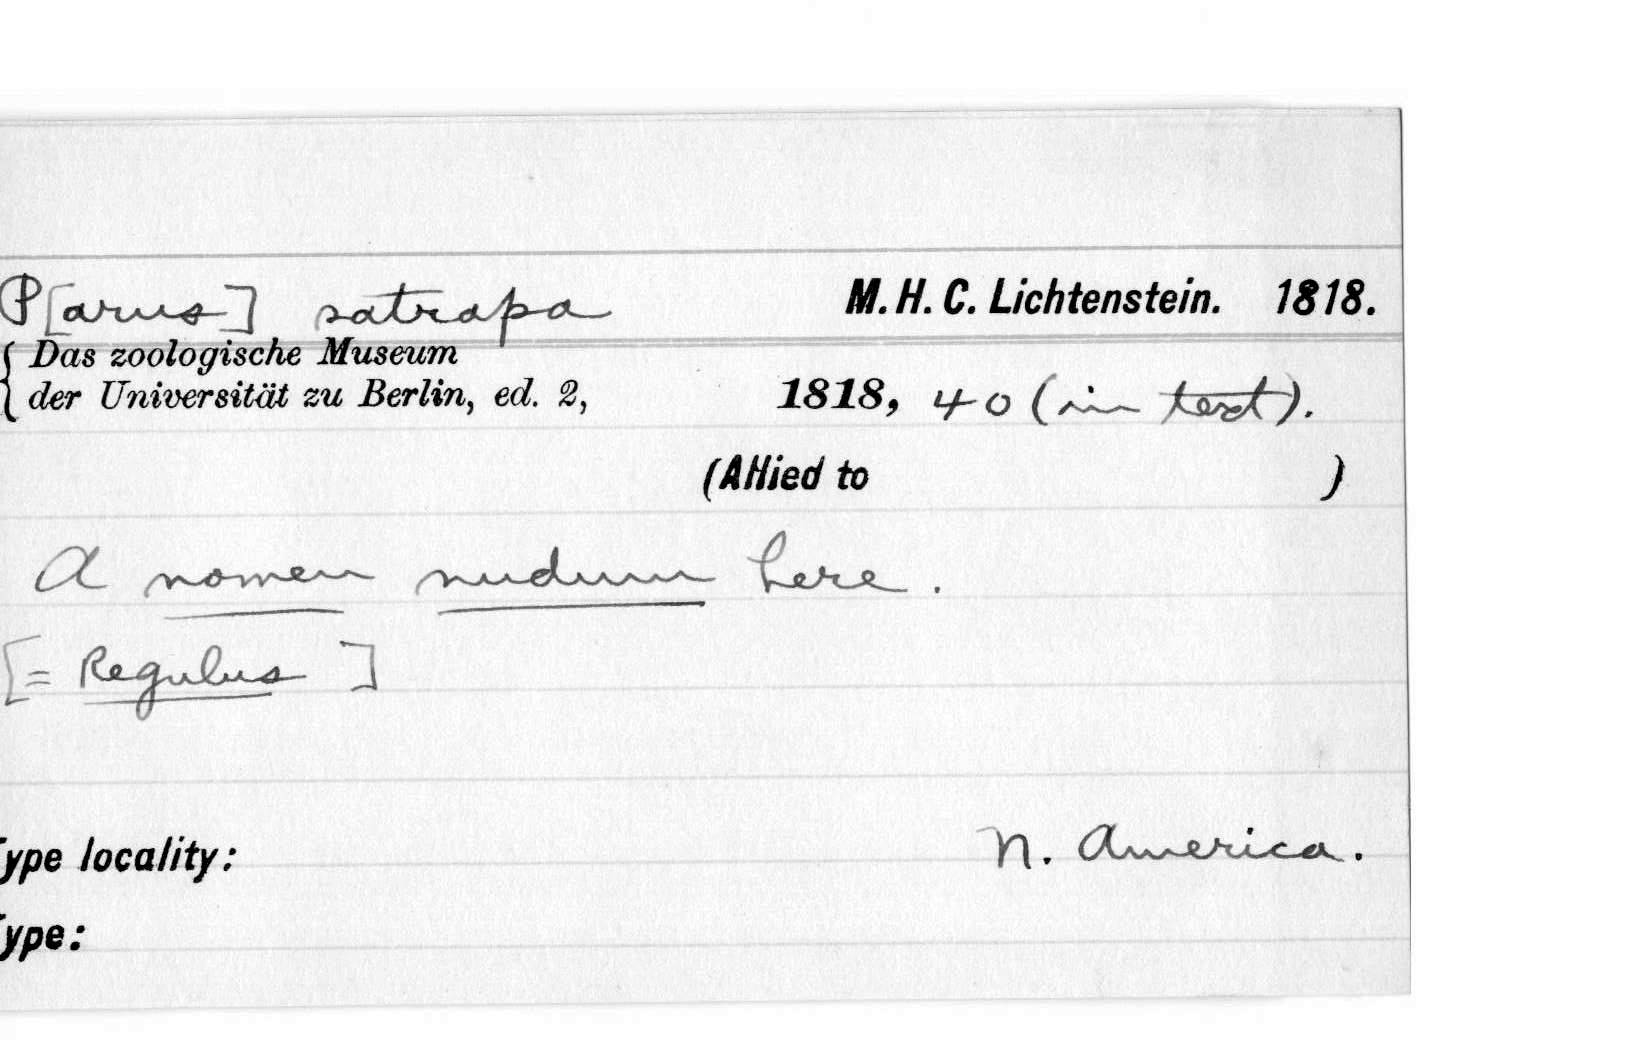 P[arus] satrapa M. H. C. Lichtenstein. 1818.
Das zoologische Museum
der Universität zu Berlin, ed. 2, 1818, 40 (in text).
(Allied to )
A nomen nudum here.
[= Regulus ]
Type locality: N. America.
Type: